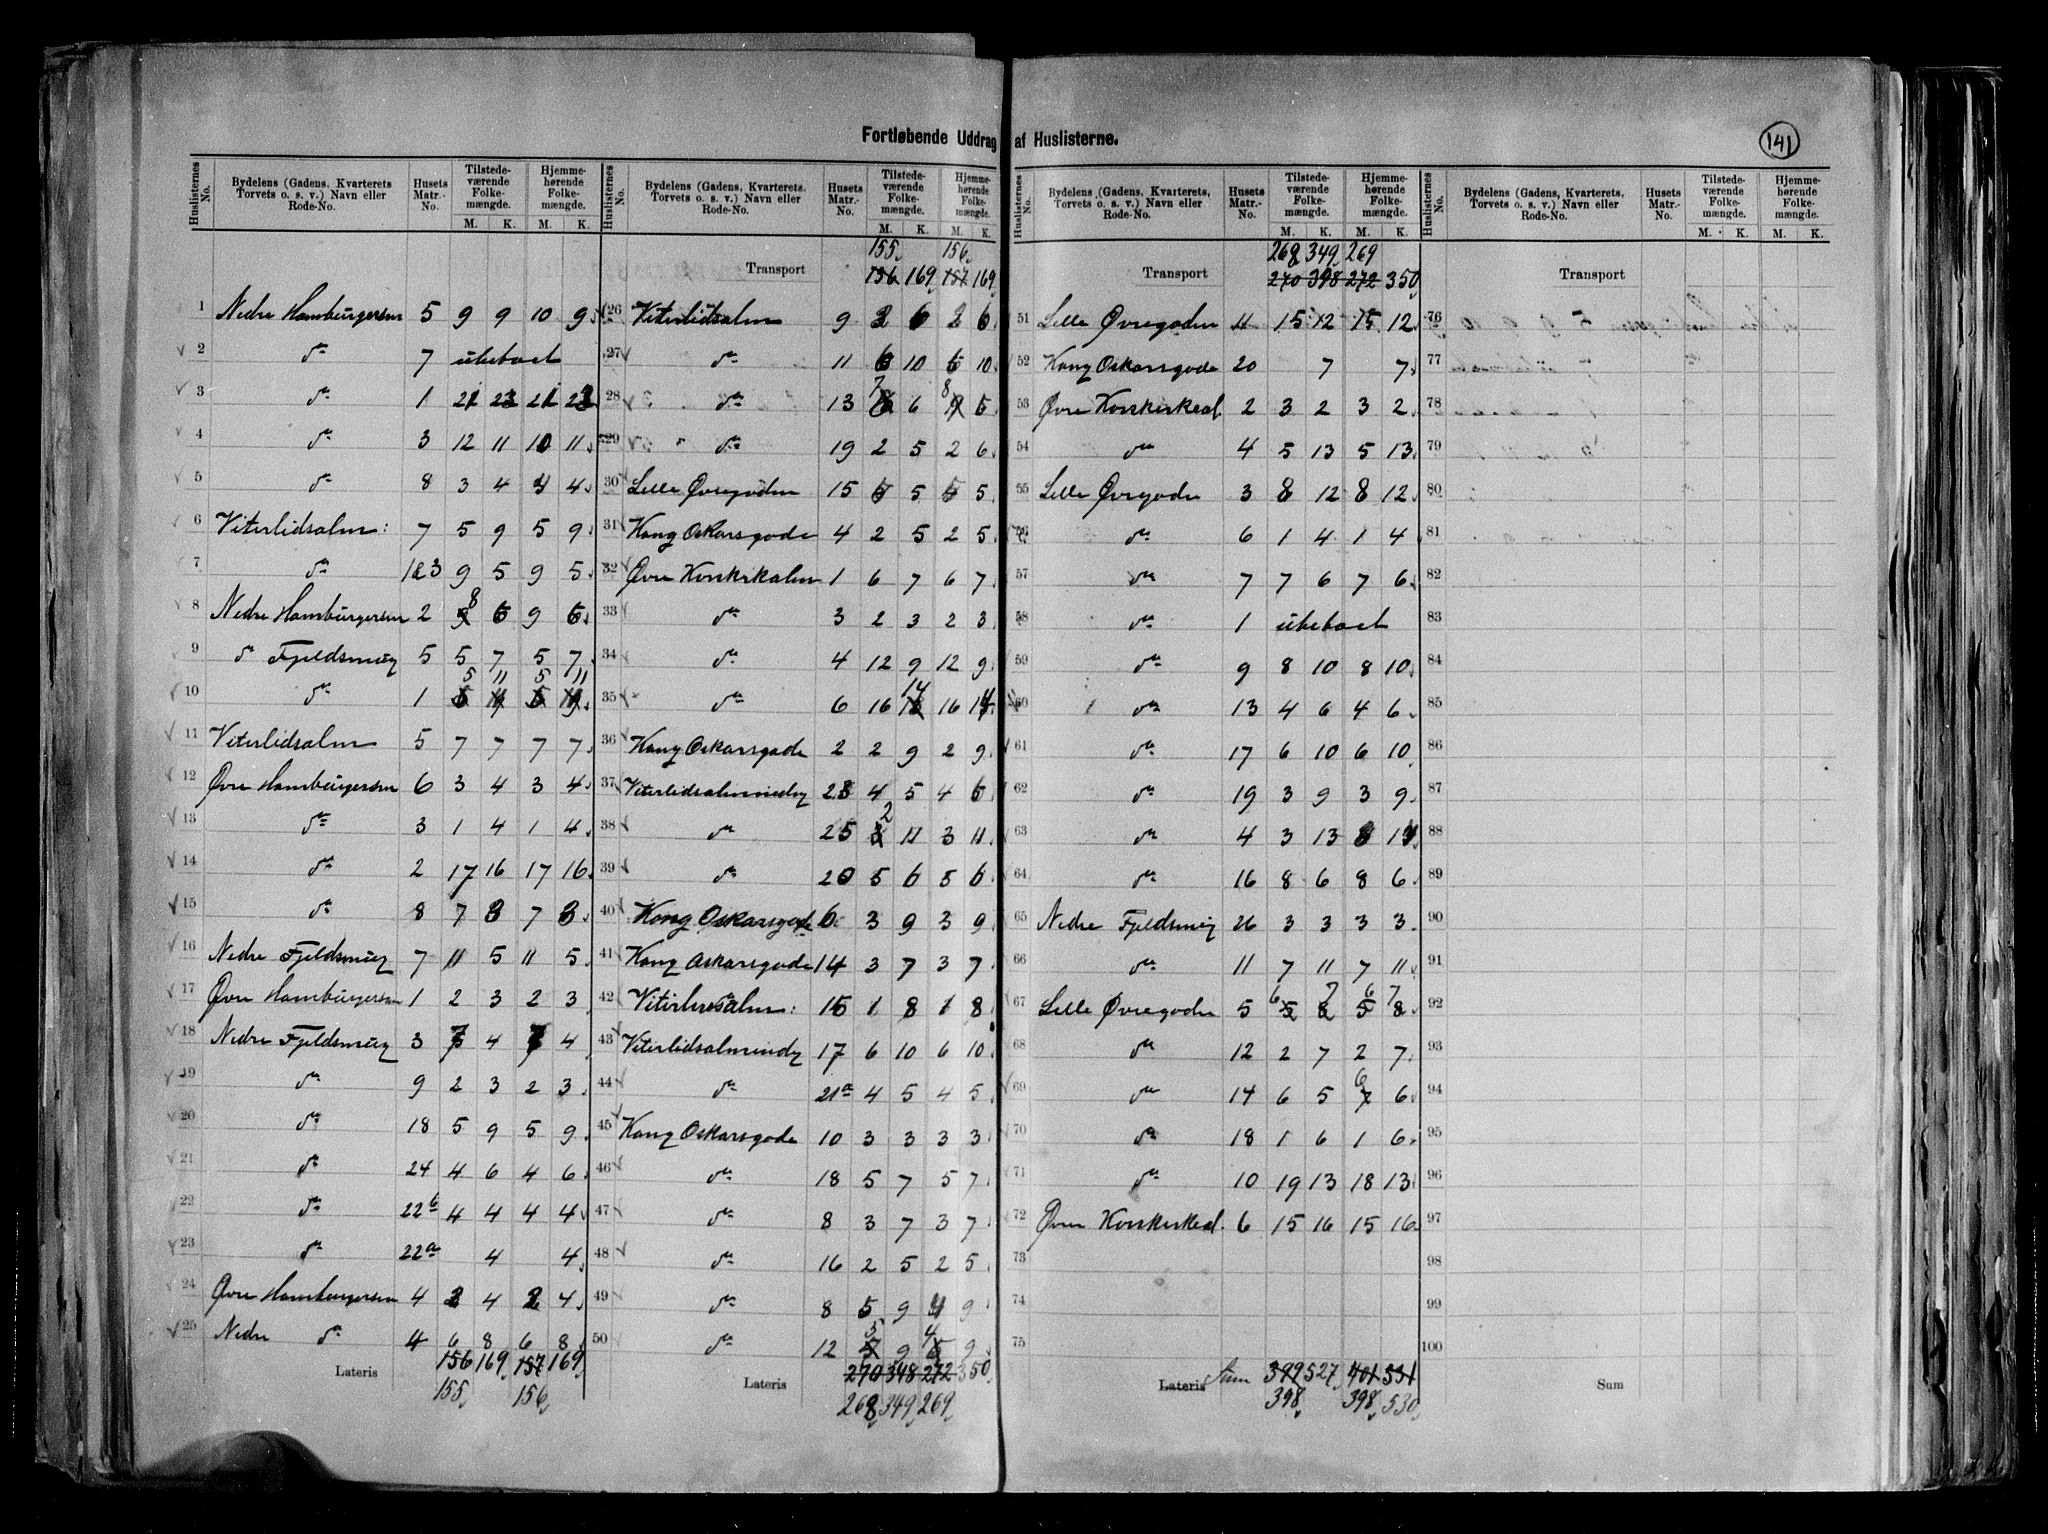 Fortløbende Uddrag af Huslisterne.
141
Huslisternes No. Bydelens (Gadens, Kvarterets Torvets o. s. v.) Navn eller Rode-No. Husets Matr.-No. Tilstedeværende Folkemængde. M. K. Hjemmehørende Folkemængde. M. K.
1 Nedre Hamburgersm 5 9 9 10 9
2 do 7 ubeboet
3 do 1
4 do 3 12 11 10 11
5 do 8 3 4 4 4
6 Viterlidsalm: 7 5 9 5 9
7 do 9 5 9 5
8 Nedre Hamburgersm 2 8 6 9 6
9 do Fjeldsmug 5 5 7 5 7
10 do 1 5 11 5 11
11 Viterlidsalm 5 7 7 7 7
12 Øvre Hamburgersm 6 3 4 3 4
13 do 3 1 4 1 4
14 do 2 17 16 17 16
15 do 8 7 8 7 8
16 Nedre Fjeldsmug 7 11 5 11 5
17 Øvre Hamburgersm 1 2 3 2 3
18 Nedre Fjeldsmug 3 4 4
19 do 9 2 3 2 3
20 do 18 5 9 5 9
21 do 24 4 6 4 6
22 do 22b 4 4 4 4
23 do 22a 4 4
24 Øvre Hamburgersm 4 2 4 2 4
25 Nedre do 4 6 8 6 8
Lateris 156 169 157 169
155 156
Huslisternes No. Bydelens (Gadens, Kvarterets, Torvets o. s. v.) Navn eller Rode-No. Husets Matr.-No. Tilstedeværende Folkemængde. M. K. Hjemmehørende Folkemængde. M. K.
155 156
Transport 156 169 157 169
26 Viterlidsalm 9 2 6 2 6
27 do 11 6 10 6 10
28 do 13 7 6 8 6
29 do 19 2 5 2 6
30 Lille Øvregaden 15 5 5 5 5
31 Kong Oskarsgade 4 2 5 2 5
32 Øvre Korskirkalm 1 6 7 6 7
33 do 3 2 3 2 3
34 do 4 12 9 12 9
35 do 6 16 14 16 14
36 Kong Oskarsgade 2 2 9 2 9
37 Viterlidsalmindg 23 4 5 4 6
38 do 25 2 11 3 11
39 do 20 5 6 5 6
40 Kong Oskarsgade 6 3 9 3 9
41 Kong Oskarsgade 14 3 7 3 7
42 15 1 8 1 8
43 Viterlidsalmindg 17 6 10 6 10
44 do 21a 4 5 4 5
45 Kong Oskarsgade 10 3 3 3 3
46 do 18 5 7 5 7
47 do 8 3 7 3 7
48 do 16 2 5 2 5
49 do 8 5 9 4 9
50 do 12 5 9 4 9
Lateris 270 348 272 350
268 349 269
Huslisternes No. Bydelens (Gadens, Kvarterets, Torvets o. s. v.) Navn eller Rode-No. Husets Matr.-No. Tilstedeværende Folkemængde. M. K. Hjemmehørende Folkemængde. M. K.
268 349 269
Transport 270 398 272 350
51 Lille Øvregaden 11 15 12 15 12
52 Kong Oskarsgade 20 7 7
53 Øvre Korskirkeal. 2 3 2 3 2
54 do 4 5 13 5 13
55 Lille Øvregaden 3 8 12 8 12
56 do 6 1 4 1 4
57 do 7 7 6 7 6
58 do 1 ubeboet
59 do 9 8 10 8 10
60 do 13 4 6 4 6
61 do 17 6 10 6 10
62 do 19 3 9 3 9
63 do 4 3 13
64 do 16 8 6 8 6
65 Nedre Fjeldsmug 26 3 3 3 3
66 do 11 7 11 7 11
67 Lille Øvregaden 5 6 7 6 7
68 do 12 2 7 2 7
69 do 14 6 5 6 6
70 do 18 1 6 1 6
71 do 10 19 13 18 13
72 Øvre Korskirkeal. 6 15 16 15 16
73
74
75
Lateris Sum 399 527 401 531
398 398 530
Huslisternes No. Bydelens (Gadens, Kvarterets, Torvets o. s. v.) Navn eller Rode-No. Husets Matr.-No. Tilstedeværende Folkemængde. M. K. Hjemmehørende Folkemængde. M. K.
Transport
76
77
78
79
80
81
82
83
84
85
86
87
88
89
90
91
92
93
94
95
96
97
98
99
100
Sum